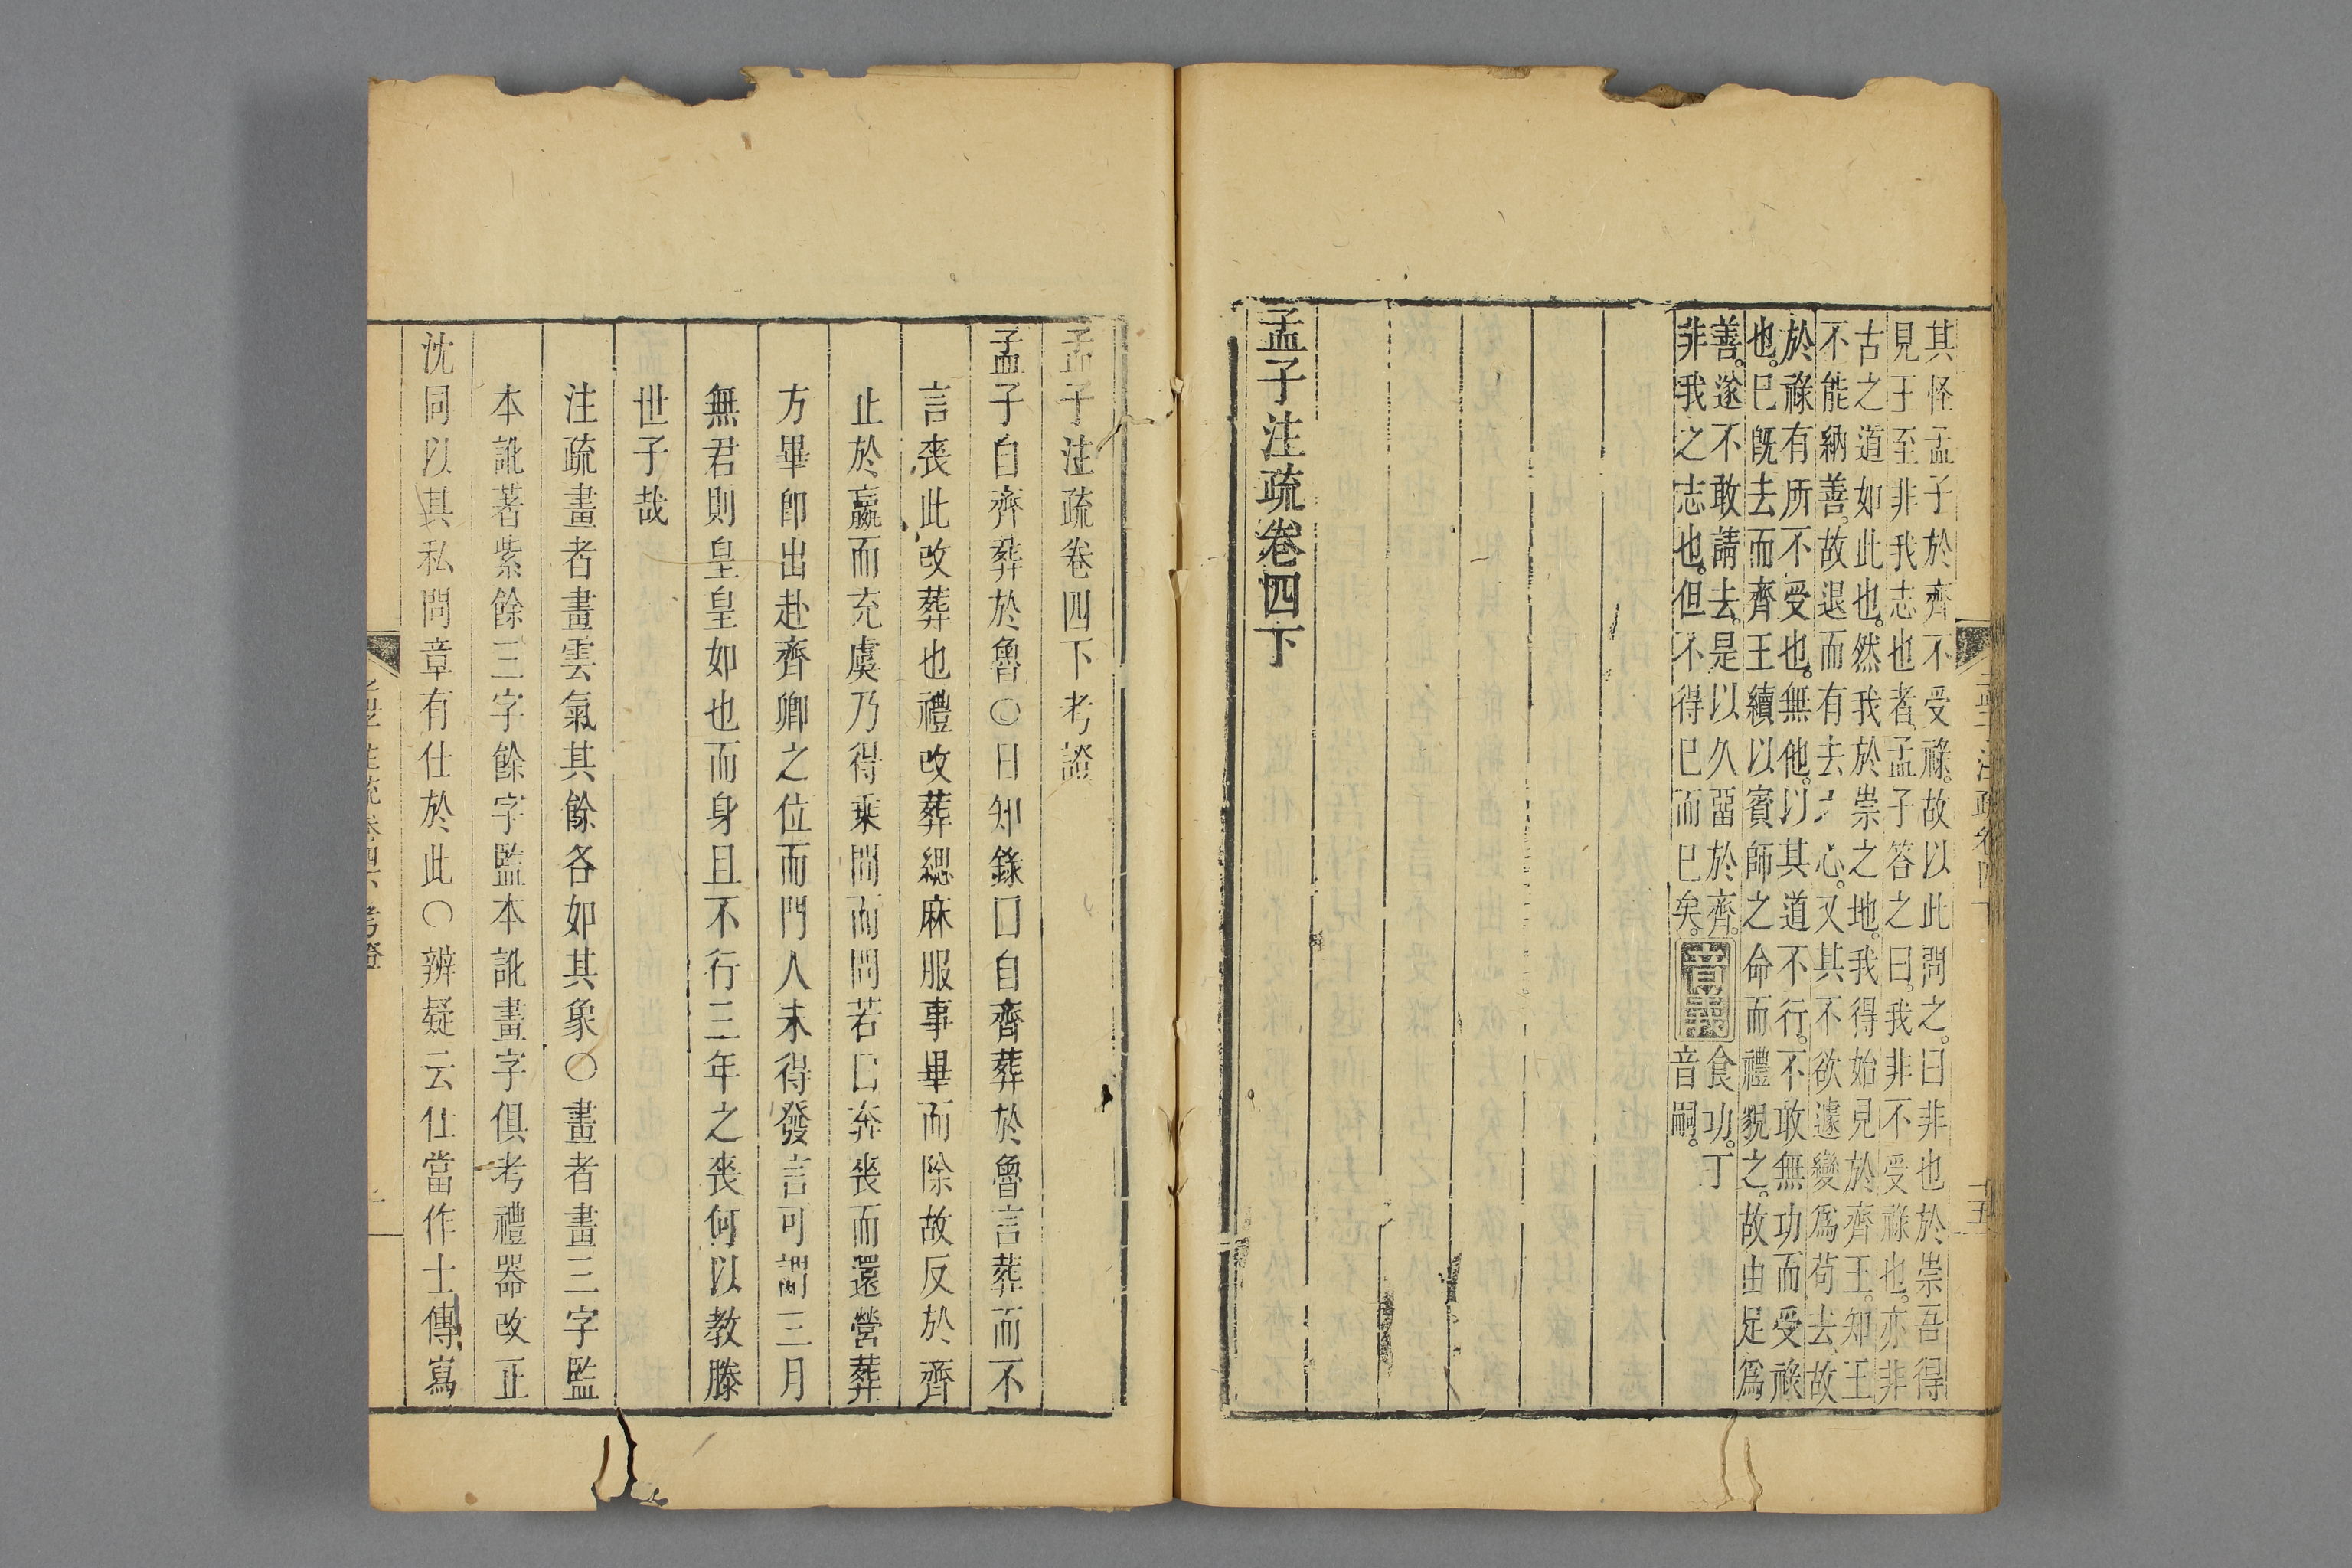 其怪孟子於齊不受祿。故以此問之。曰非也於崇吾得
見于至非我志也者。孟子答之曰。我非不受祿也。亦非
古之道如此也。然我於崇之地。我得始見於齊王。知王
不能納善。故退而有去之心。又其不欲遽變爲苟去。故
於祿有所不受也。無他。以其道不行。不敢無功而受祿
也。已旣去而齊王續以賓師之命而禮貌之。故由足爲
善。遂不敢請去。是以久畱於齊。音義食功。丁
非我之志也。但不得已而已矣。音嗣。
孟子注疏卷四下
孟子注疏卷四下
二五
孟子注疏卷四下考證
孟子自齊葬於魯〇日知錄曰自齊葬於魯言葬而不
言喪此改葬也禮改葬緦麻服事畢而除故反於齊
止於嬴而充虞乃得乗間而問若曰奔喪而還營葬
方畢卽出赴齊卿之位而門人未得發言可謂三月
無君則皇皇如也而身且不行三年之喪何以教滕
世子哉
注疏畫者畫雲氣其餘各如其象〇畫者畫三字監
本訛著紫餘三字餘字監本訛畫字俱考禮器改正
沈同以其私問章有仕於此〇辨疑云仕當作士傳寫
孟子注疏卷四下考證